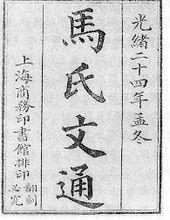 光緒二十四年孟冬
馬氏文通
上海商務印書館排印 翻刻必究